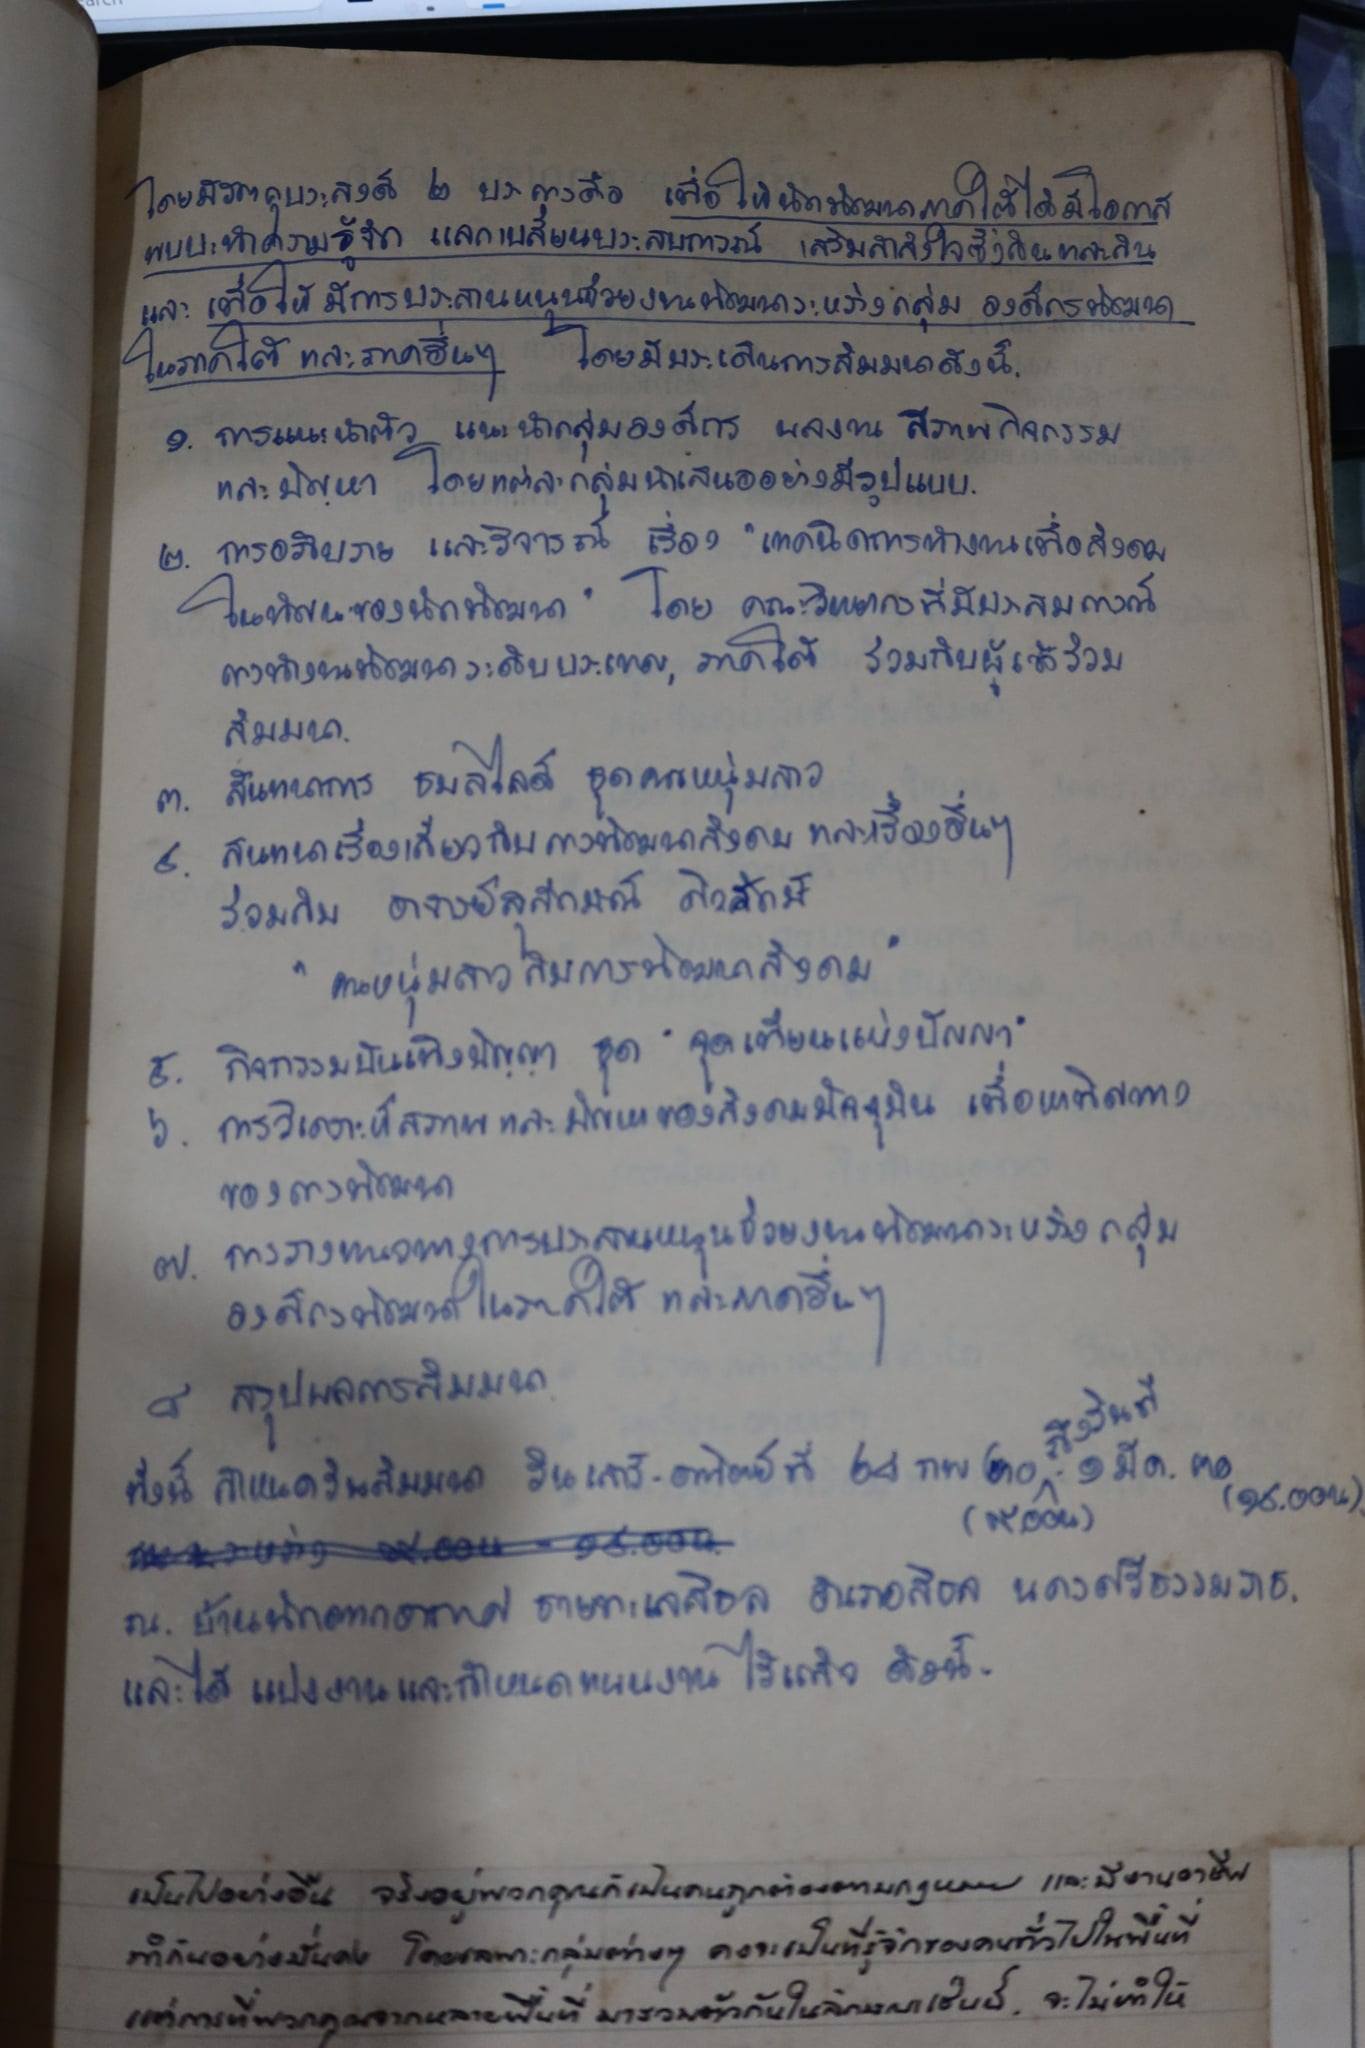 earch
โดยมีวัตถุประสงค์ ๒ ประการคือ เพื่อให้นักพัฒนาภาคใต้ได้มีโอกาส
พบปะทำความรู้จัก แลกเปลี่ยนประสบการณ์ เสริมกำลังใจซึ่งกันและกัน
และ เพื่อให้มีการประสานหนุนช่วยงานพัฒนาระหว่างกลุ่ม องค์กรพัฒนา
ในภาคใต้ และภาคอื่นๆ โดยมีประเด็นการสัมมนาดังนี้.
๑. การแนะนำตัว แนะนำกลุ่มองค์กร ผลงาน สภาพกิจกรรม
และปัญหา โดยแต่ละกลุ่มนำเสนออย่างมีรูปแบบ.
๒. การอภิปราย และวิจารณ์ เรื่อง "เทคนิคการทำงานเพื่อสังคม
ในทัศนะของนักพัฒนา" โดย คณะวิทยากรที่มีประสบการณ์
การทำงานพัฒนาระดับประเทศ, ภาคใต้ ร่วมกับผู้เข้าร่วม
สัมมนา.
๓. สันทนาการ ชมสไลด์ ชุดคนหนุ่มสาว
๔. สนทนาเรื่องเกี่ยวกับการพัฒนาสังคม และเรื่องอื่นๆ
ร่วมกับ อาจารย์สุลักษณ์ ศิวรักษ์
"คนหนุ่มสาวกับการพัฒนาสังคม"
๕. กิจกรรมบันเทิงปัญญา ชุด "จุดเทียนแห่งปัญญา"
๖. การวิเคราะห์สภาพและปัญหาของสังคมปัจจุบัน เพื่อหาทิศทาง
ของการพัฒนา
๗. การวางแนวทางการประสานหนุนช่วยงานพัฒนาระหว่างกลุ่ม
องค์กรพัฒนาในภาคใต้ และภาคอื่นๆ
๘ สรุปผลการสัมมนา
ถึงวันที่
ทั้งนี้ กำหนดวันสัมมนา วันเสาร์-อาทิตย์ที่ ๒๘ กพ ๓๐ - ๑ มีค. ๓๐
(๑๕.๐๐น)
ณ. บ้านพักตากอากาศ ชายทะเลสิชล อำเภอสิชล นครศรีธรรมราช.
และได้ แบ่งงานและกำหนดแผนงานไว้แล้ว ดังนี้.
เป็นไปอย่างอื่น จริงอยู่พวกคุณก็เป็นคนถูกต้องตามกฎหมาย และมีงานอาชีพ
ทำกันอย่างมั่นคง โดยเฉพาะกลุ่มต่างๆ คงจะเป็นที่รู้จักของคนทั่วไปในพื้นที่
แต่การที่พวกคุณจากหลายพื้นที่ มารวมตัวกันในลักษณะเช่นนี้. จะไม่ทำให้